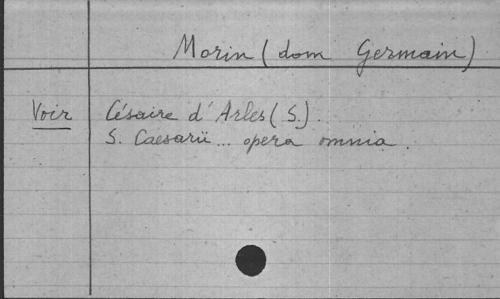 Morin (dom Germain)
Voir Césaire d'Arles (S.).
S. Caesarii... opera omnia.